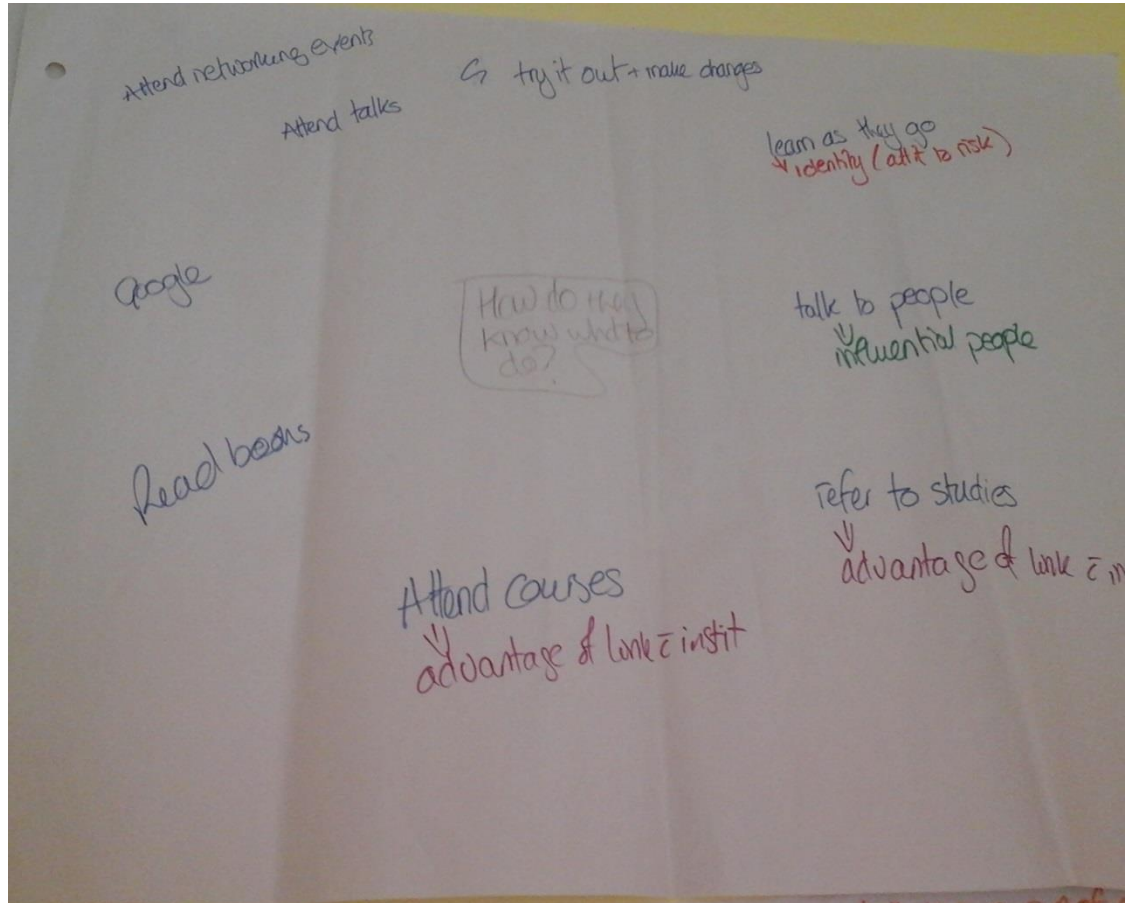 Attend networking events
↳ try it out + make changes
Attend talks
learn as they go
↓ identity (att. to risk)
Google
How do they
know what to
do?
talk to people
⇓
influential people
Read books
refer to studies
⇓
advantage of link c̄ in
Attend courses
⇓
advantage of link c̄ instit